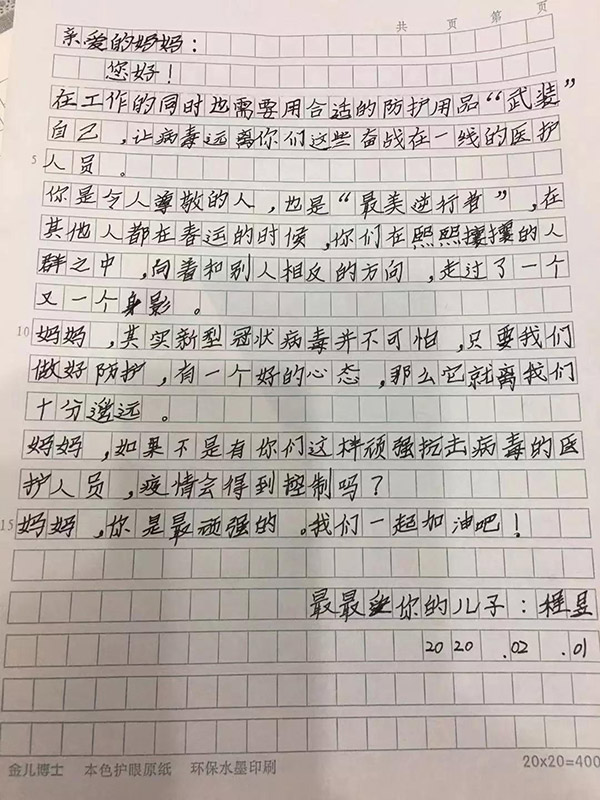 共 页 第 页
亲爱的妈妈：
您好！
在工作的同时也需要用合适的防护用品“武装”
自己，让病毒远离你们这些奋战在一线的医护
5
人员。
你是令人尊敬的人，也是“最美逆行者”，在
其他人都在春运的时候，你们在熙熙攘攘的人
群之中，向着和别人相反的方向，走过了一个
又一个身影。
10 妈妈，其实新型冠状病毒并不可怕，只要我们
做好防护，有一个好的心态，那么它就离我们
十分遥远。
妈妈，如果不是有你们这样顽强抗击病毒的医
护人员，疫情会得到控制吗？
15 妈妈，你是最顽强的。我们一起加油吧！
最最爱你的儿子：程昱
2020.02.01
金儿博士 本色护眼原纸 环保水墨印刷 20x20=400